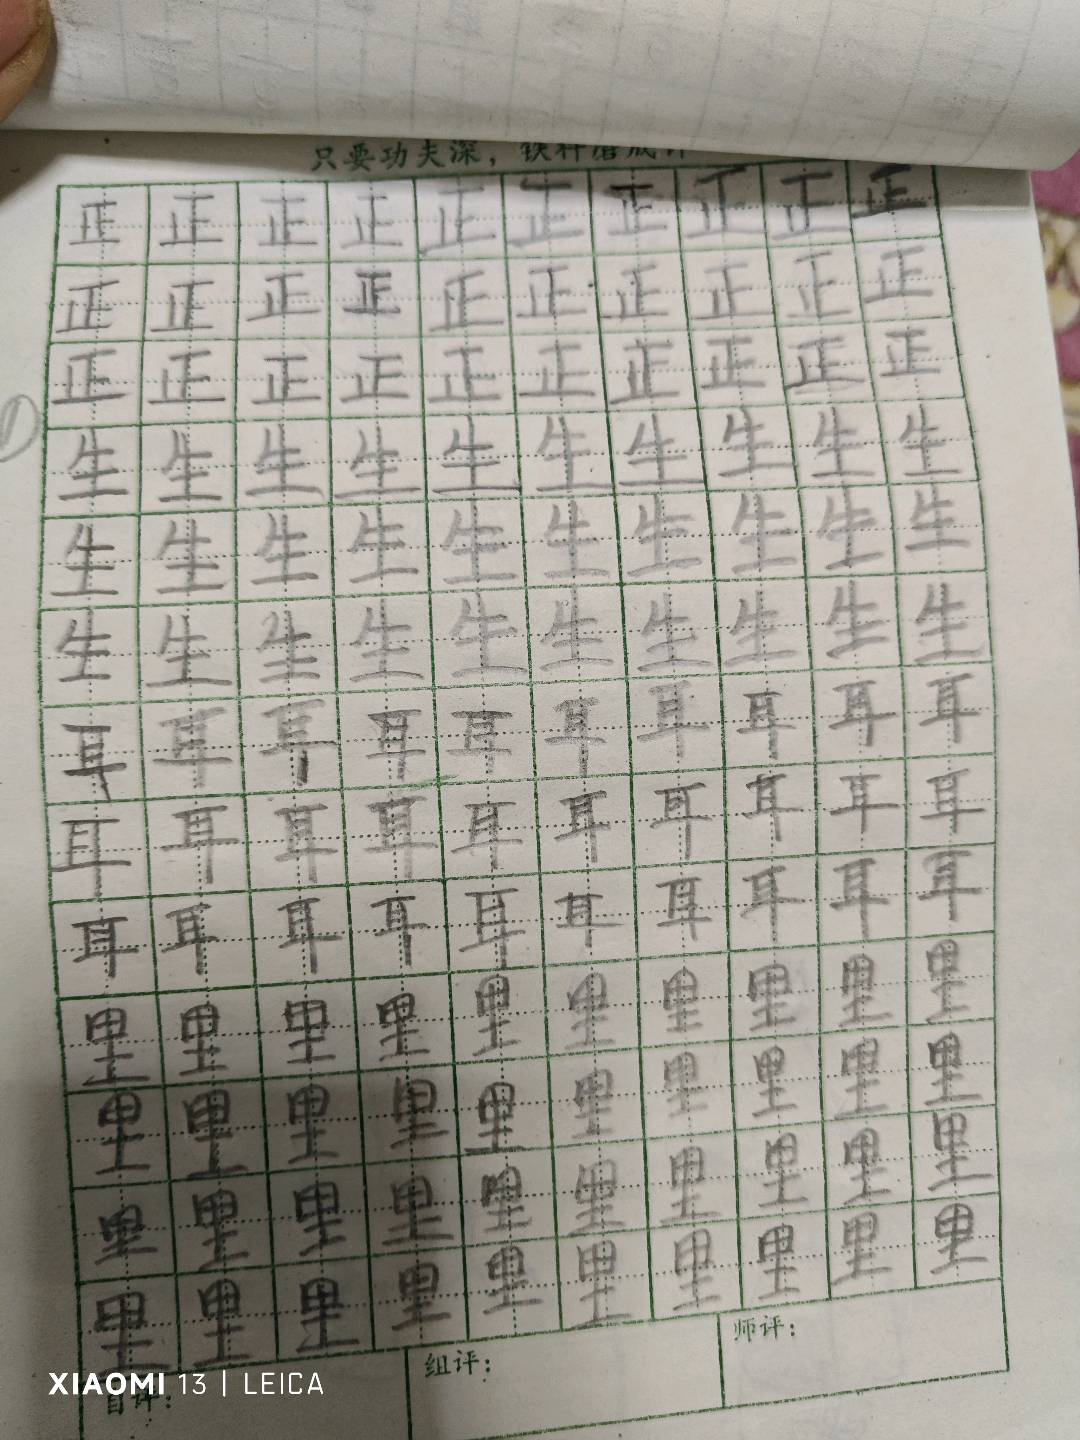 只要功夫深，铁杵磨成针
正正正正正正正正正正
正正正正正正正正正正
正正正正正正正正正正
生生生生生生生生生生
生生生生生生生生生生
生生生生生生生生生生
耳耳耳耳耳耳耳耳耳耳
耳耳耳耳耳耳耳耳耳耳
耳耳耳耳耳耳耳耳耳耳
里里里里里里里里里里
里里里里里里里里里里
里里里里里里里里里里
里里里里里里里里里里
自评： 组评： 师评：
XIAOMI 13 | LEICA